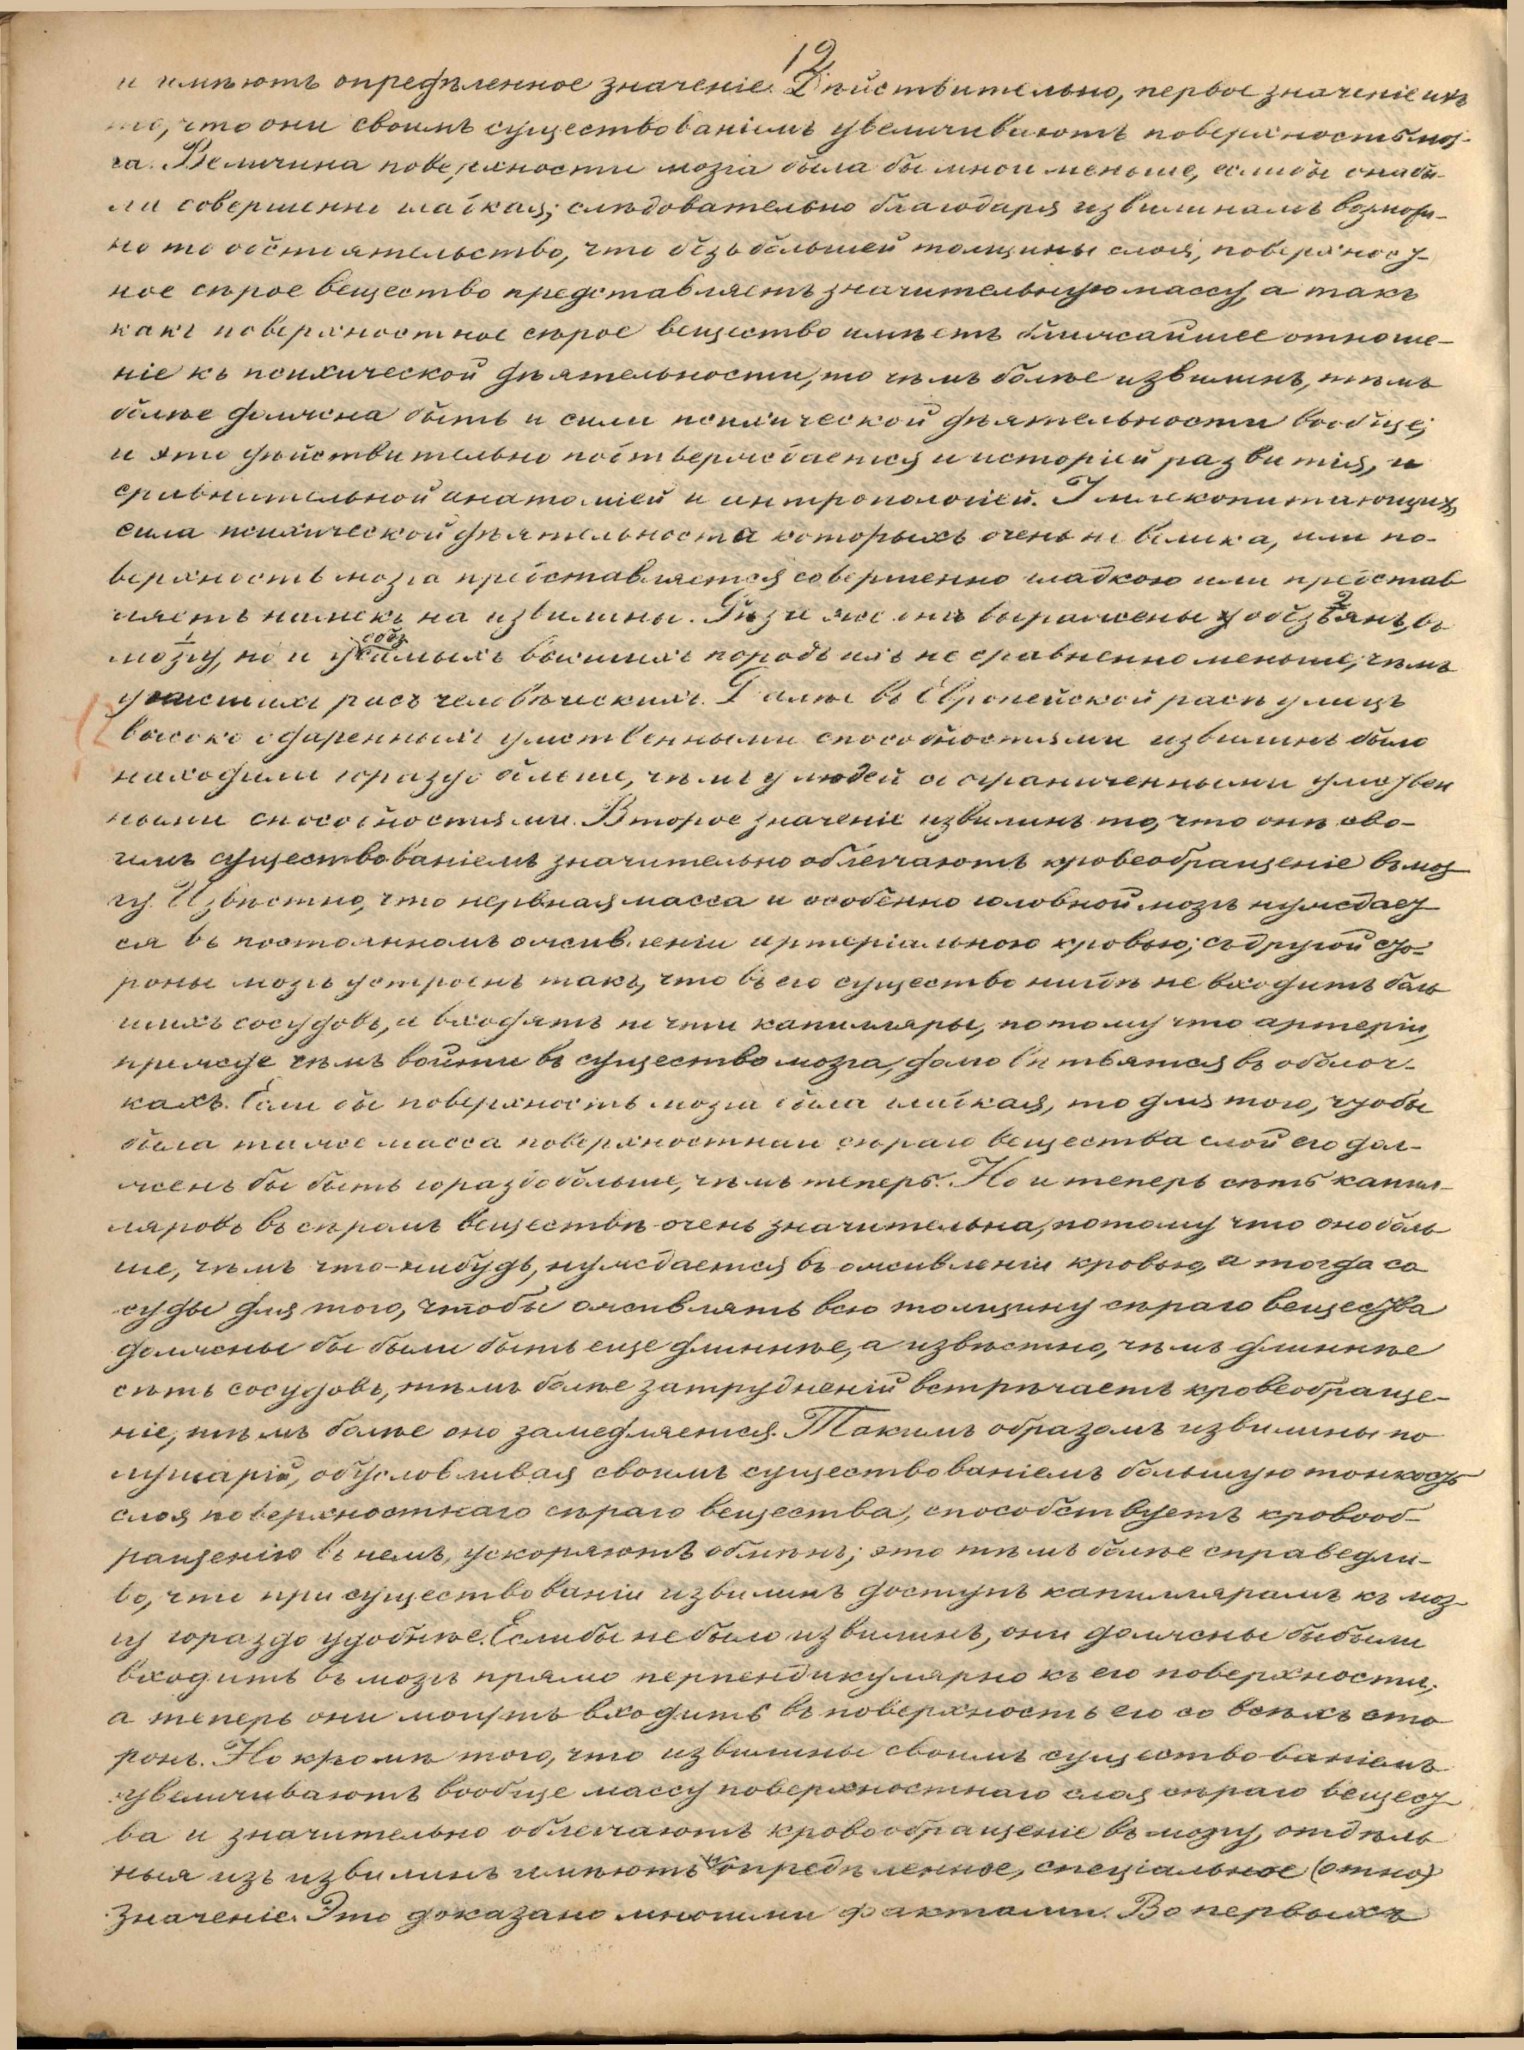 12
и имѣютъ опредѣленное значеніе. Дѣйствительно, первое значеніе ихъ
то, что они своимъ существованіемъ увеличиваютъ поверхность моз-
га. Величина поверхности мозга была бы много меньше, если бы она бы-
ла совершенно гладкая; слѣдовательно благодаря извилинамъ возмож-
но то обстоятельство, что безъ большей толщины слоя, поверхност-
ное сѣрое вещество представляетъ значительную массу, а такъ
какъ поверхностное сѣрое вещество имѣетъ ближайшее отноше-
ніе къ психической дѣятельности, то чѣмъ болѣе извилинъ, тѣмъ
болѣе должна быть и сила психической дѣятельности вообще;
и это дѣйствительно подтверждается и исторіей развитія, и
сравнительной анатоміей и антропологіей. У млекопитающихъ,
сила психической дѣятельности которыхъ очень не велика, или по-
верхность мозга представляется совершенно гладкою или представ
ляетъ намекъ на извилины. Рѣзче же онѣ выражены у обезьянъ, въ
мозгу, но и у самыхъ высшихъ породъ ихъ не сравненно меньше, чѣмъ
собз
у низшихъ расъ человѣческихъ. Далѣе въ Европейской расѣ у лицъ
высоко одаренныхъ умственными способностями извилинъ было
находили гораздо больше, чѣмъ у людей съ ограниченными умствен
ными способностями. Второе значеніе извилинъ то, что онѣ сво-
имъ существованіемъ значительно облегчаютъ кровеобращеніе въ моз
гу. Извѣстно, что нервная масса и особенно головной мозгъ нуждает
ся въ постоянномъ оживленіи артеріальною кровью; съ другой сто-
роны мозгъ устроенъ такъ, что въ его существо нигдѣ не входитъ боль
шихъ сосудовъ, а входятъ почти капилляры, потому что артеріи,
прежде чѣмъ войти въ существо мозга, долго вѣтвятся въ оболоч-
кахъ. Если бы поверхность мозга была гладкая, то для того, чтобы
была таже масса поверхностнаго сѣраго вещества слой его дол-
женъ бы быть гораздо больше, чѣмъ теперь. Но и теперь сѣть капил-
ляровъ въ сѣромъ веществѣ очень значительна, потому что оно боль
ше, чѣмъ что-нибудь, нуждается въ оживленіи кровью, а тогда со
суды для того, чтобы оживлять всю толщину сѣраго вещества
должны бы были быть еще длиннѣе, а извѣстно, чѣмъ длиннѣе
сѣть сосудовъ, тѣмъ болѣе затрудненій встрѣчаетъ кровеобраще-
ніе, тѣмъ болѣе оно замедляется. Такимъ образомъ извилины по
лушарій, обусловливая своимъ существованіемъ большую тонкость
слоя поверхностнаго сѣраго вещества, способствуетъ кровооб-
ращенію въ немъ, ускоряютъ обмѣнъ; это тѣмъ болѣе справедли-
во, что при существованіи извилинъ доступъ капиллярамъ къ моз-
гу гораздо удобнѣе. Если бы не было извилинъ, они должны бы были
входить въ мозгъ прямо перпендикулярно къ его поверхности,
а теперь они могутъ входить въ поверхность его со всѣхъ сто
ронъ. Но кромѣ того, что извилины своимъ существованіемъ
увеличиваютъ вообще массу поверхностнаго слоя сѣраго вещест
ва и значительно облегчаютъ кровообращеніе въ мозгу, отдѣль
ныя изъ извилинъ имѣютъ и опредѣленное, спеціальное (отно)
значеніе. Это доказано многими фактами. Во первыхъ